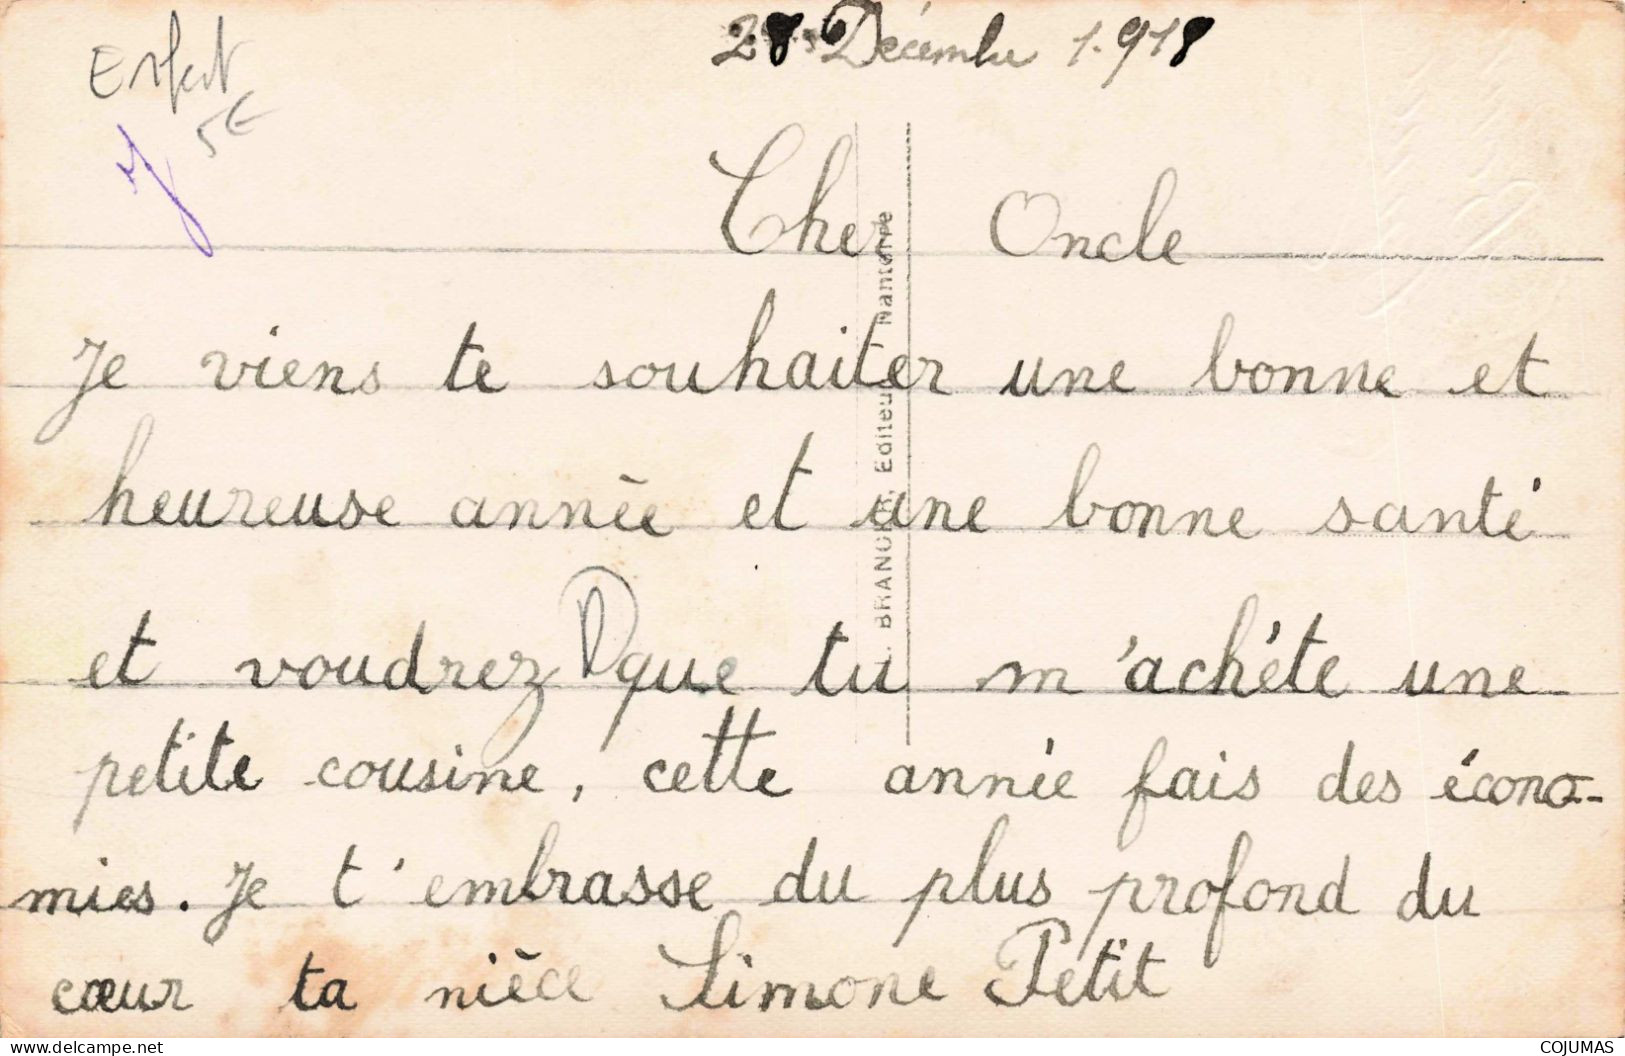 28 Décembre 1.918
Enfant
5€
Cher Oncle
Je viens te souhaiter une bonne et
heureuse année et une bonne santé
et voudrez que tu m'achète une
petite cousine, cette année fais des écono-
mies. Je t'embrasse du plus profond du
cœur ta nièce Simone Petit
BRANGER, Editeur, Nanterre
www.delcampe.net
COJUMAS